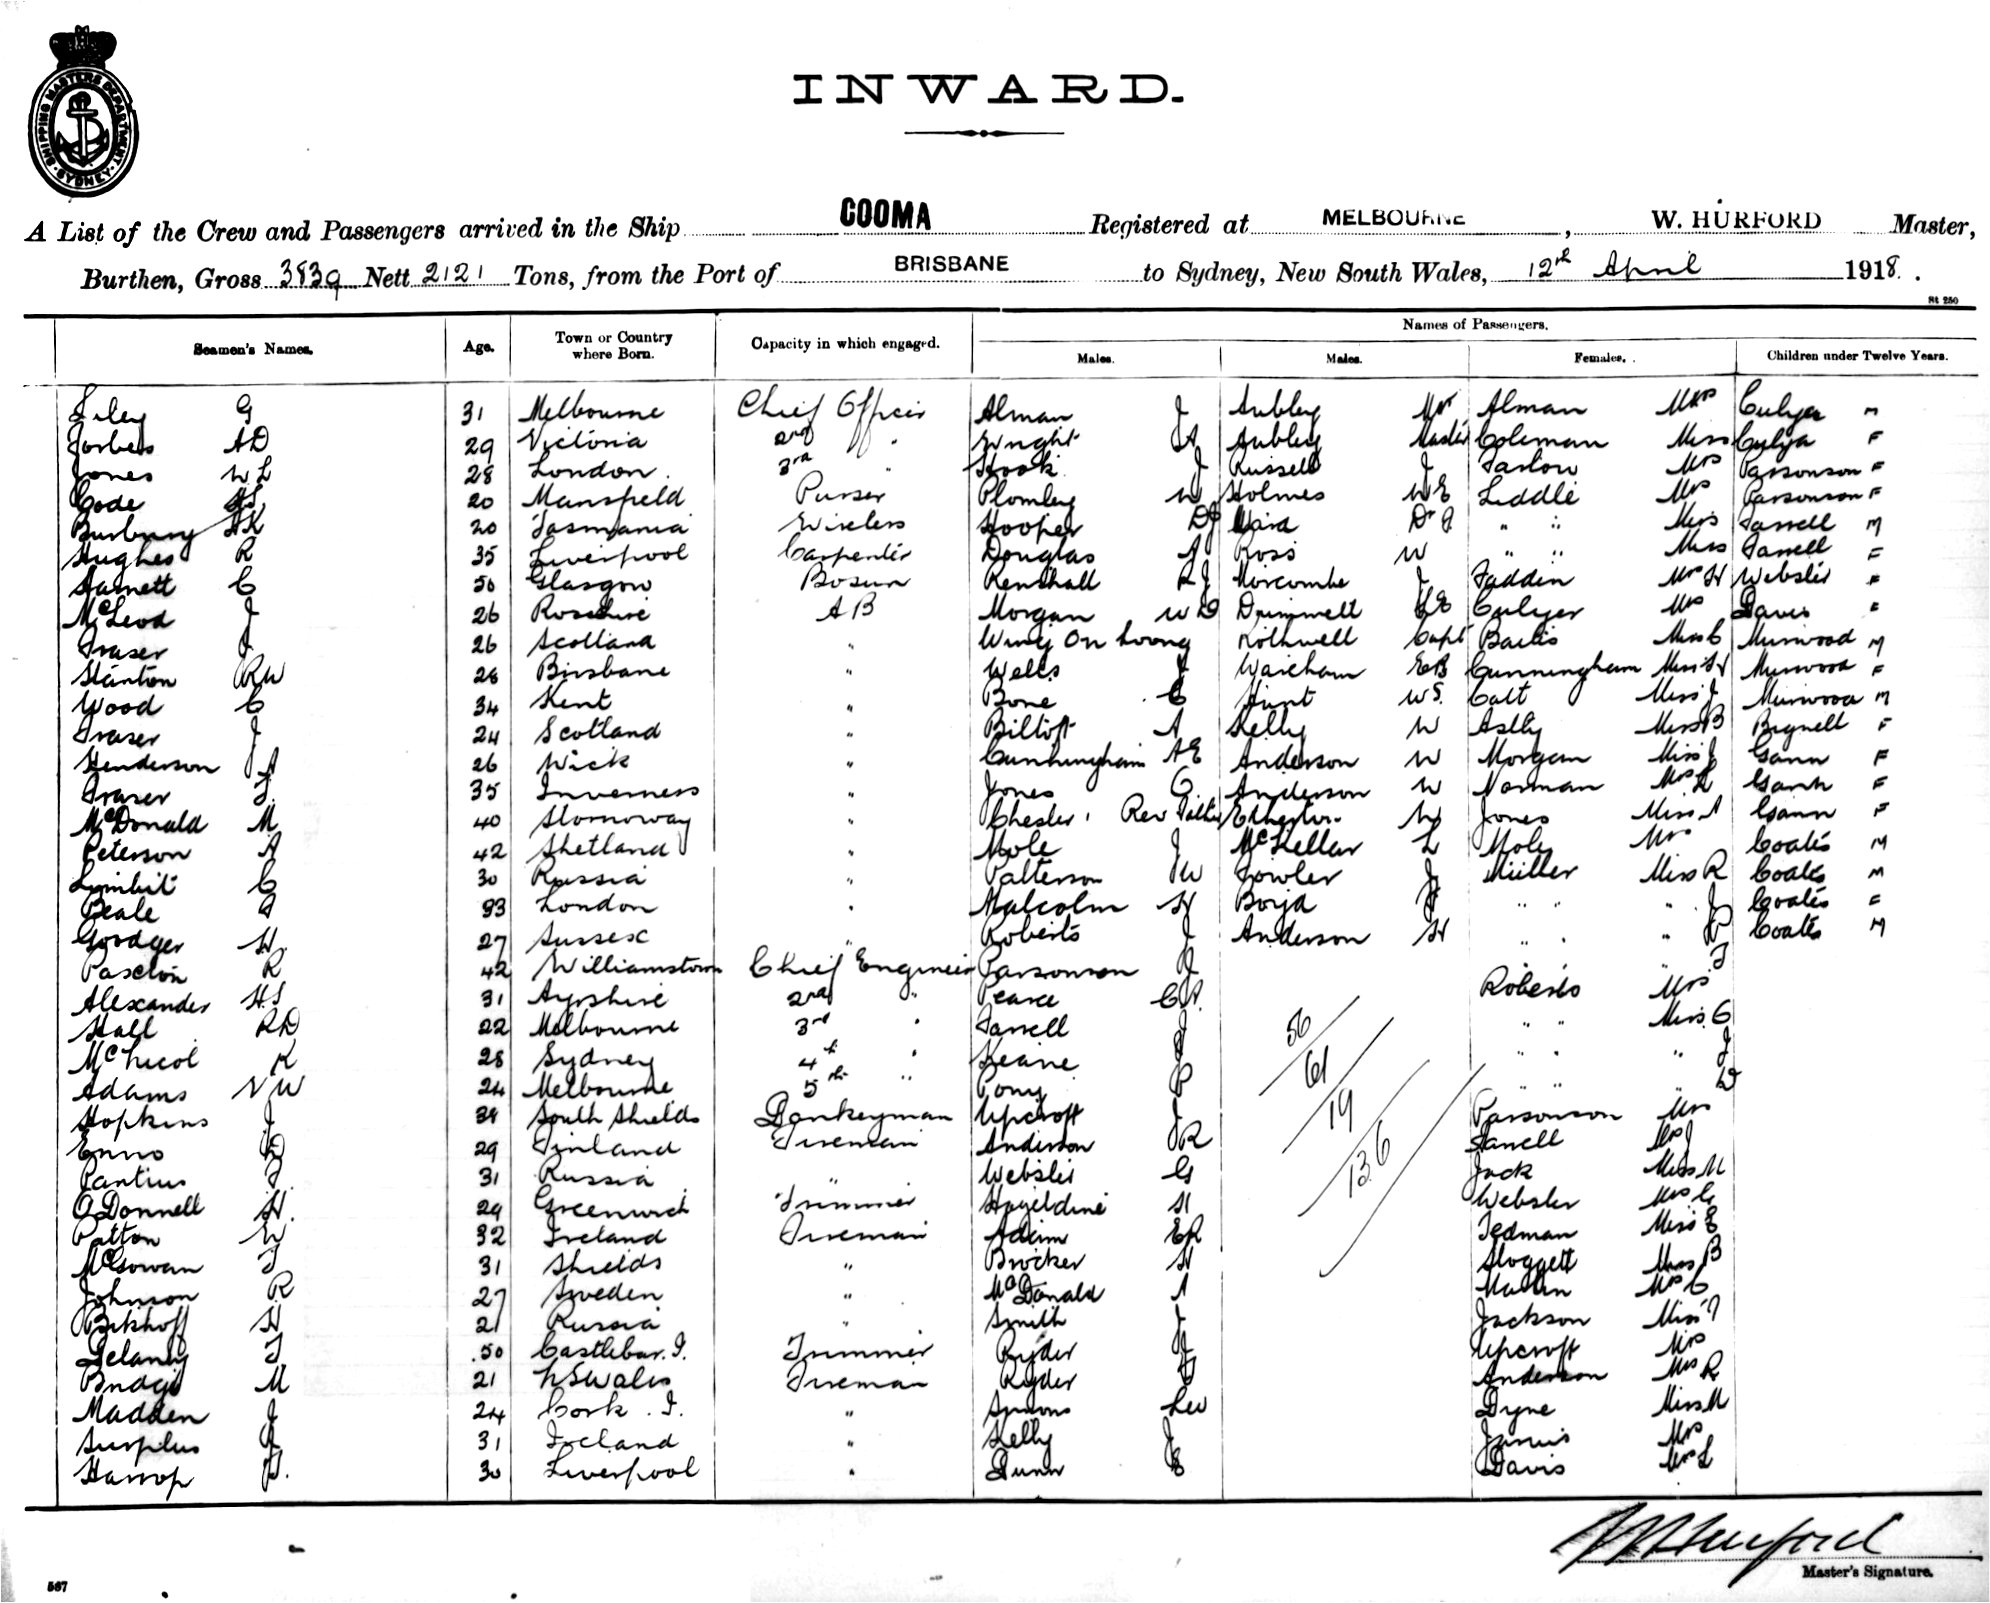 SHIPPING MASTERS DEPARTMENT
SYDNEY
INWARD.
A List of the Crew and Passengers arrived in the Ship COOMA Registered at MELBOURNE, W. HURFORD Master,
Burthen, Gross 3839 Nett 2121 Tons, from the Port of BRISBANE to Sydney, New South Wales, 12th April 1918.
St 250
Names of Passengers.
Seamen's Names. Age. Town or Country where Born. Capacity in which engaged. Males. Males. Females. Children under Twelve Years.
G 31 Melbourne Chief Officer Alman J Aubley Mr Alman Mrs Culyer M
Forbes AD 29 Victoria 2nd " Enright JA Aubley Master Coleman Miss Culya F
Jones WL 28 London 3rd " Hook J Russell J Farlow Mrs Parsonson F
Code 20 Mansfield Purser Plomley W Holmes WE Liddle Mrs Parsonson F
Burbury AK 20 Tasmania Wireless Hooper DJ Ward Dr " " Miss Farrell M
Hughes R 35 Liverpool Carpenter Douglas A Ross W " " Miss Farrell F
Harnett C 50 Glasgow Bosun Renshall RJ Morcombe J Fadden Mrs H Webster F
McLeod J 26 AB Morgan WD Culyer Mrs Davis F
Fraser J 26 Scotland " Wing On Loong Rothwell Capt Miss C Murwood M
Stanton RW 28 Brisbane " Wells J Wareham EB Cunningham Miss H Murwood F
Wood C 34 Kent " Bone C Hunt WS. Catt Miss J Murwood M
Fraser J 24 Scotland " Biltoft A Kelly W Astly Miss B Bignell F
Henderson A 26 Wick " Cunningham AE Anderson W Morgan Miss J Gann F
Fraser 35 Inverness " Jones C. Anderson W Norman Mrs L Gann F
McDonald M 40 Stornoway " Chester Rev Father W Jones Miss A Gann F
Peterson A 42 Shetland " Mole J McKellar L Mole Mrs Coates M
C 30 Russia " Patterson JW Fowler J Müller Miss R Coates M
Beale 33 London " Malcolm H Boyd " " " J Coates F
Goodger H. 27 Sussex " Roberts J Anderson H " " " P Coates M
R 42 Williamstown Chief Engineer Parsonson J " J
Alexander HS 31 Ayrshire 2nd " Pearce CA. Roberts Mrs
Hall RD 22 Melbourne 3rd " Farrell J 56 " " Miss C
McNicol K 28 Sydney 4th " Keane J 61 " " " J
Adams NW 24 Melbourne 5th " P 19 " " " W
Hopkins J 39 South Shields Donkeyman Upcroft J 136 Parsonson Mrs
Enno 29 Finland Fireman Anderson JR Farrell Mrs J
31 Russia " Webster G Jack Miss M
O'Donnell H. 29 Greenwich Trimmer Hazeldine H Webster Mrs G
Patton W 32 Ireland Fireman Adam ER Tedman Miss E
McGowan J 31 Shields " Brocker H Sloggett Miss B
Johnson R 27 Sweden " McDonald A Mrs C
H 21 Russia " Smith J Jackson Miss
Delaney J 50 Castlebar. I. Trimmer Ryder J Upcroft Mrs
Bridge M 21 NSWales Fireman Ryder Anderson Mrs R
Madden J 24 Cork. I. " Dyne Miss M
Surplus 31 Ireland " Kelly J Mrs
Harrop 30 Liverpool " Dunn E Davis Mrs L
W Hurford
Master's Signature.
567